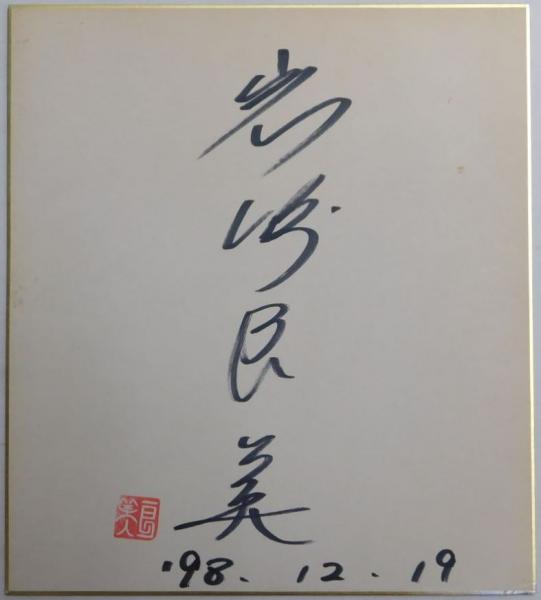 岩崎良美
良美
'98. 12. 19